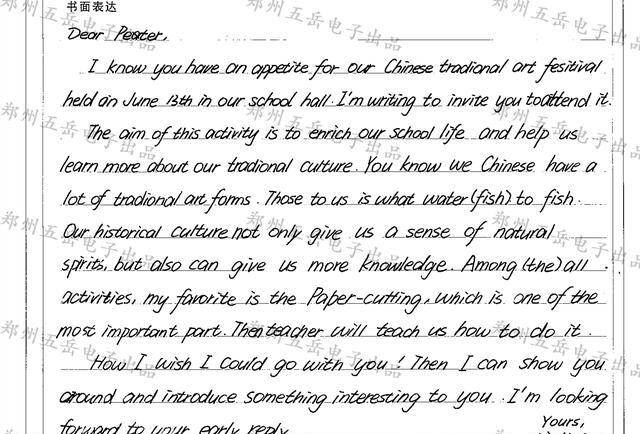 书面表达
Dear Peater,
I know you have an appetite for our Chinese tradional art fesitival
held on June 13th in our school hall. I'm writing to invite you to attend it.
The aim of this activity is to enrich our school life and help us
learn more about our tradional culture. You know we Chinese have a
lot of tradional art forms. Those to us is what water (fish) to fish.
Our historical culture not only give us a sense of natural
spirits, but also can give us more knowledge. Among (the) all
activities, my favorite is the Paper-cutting, which is one of the
most important part. Then teacher will teach us how to do it.
How I wish I could go with you! Then I can show you
around and introduce something interesting to you. I'm looking
forward to your early reply.
Yours,
郑州五岳电子出品